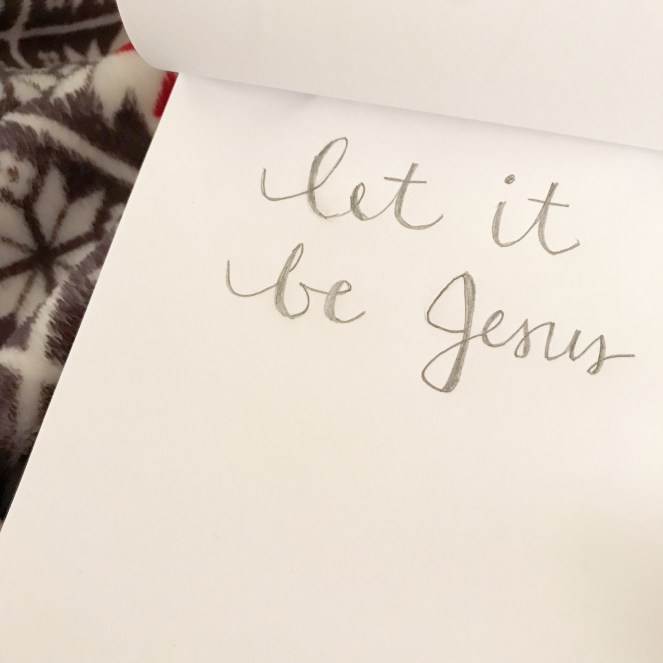 let it
be Jesus